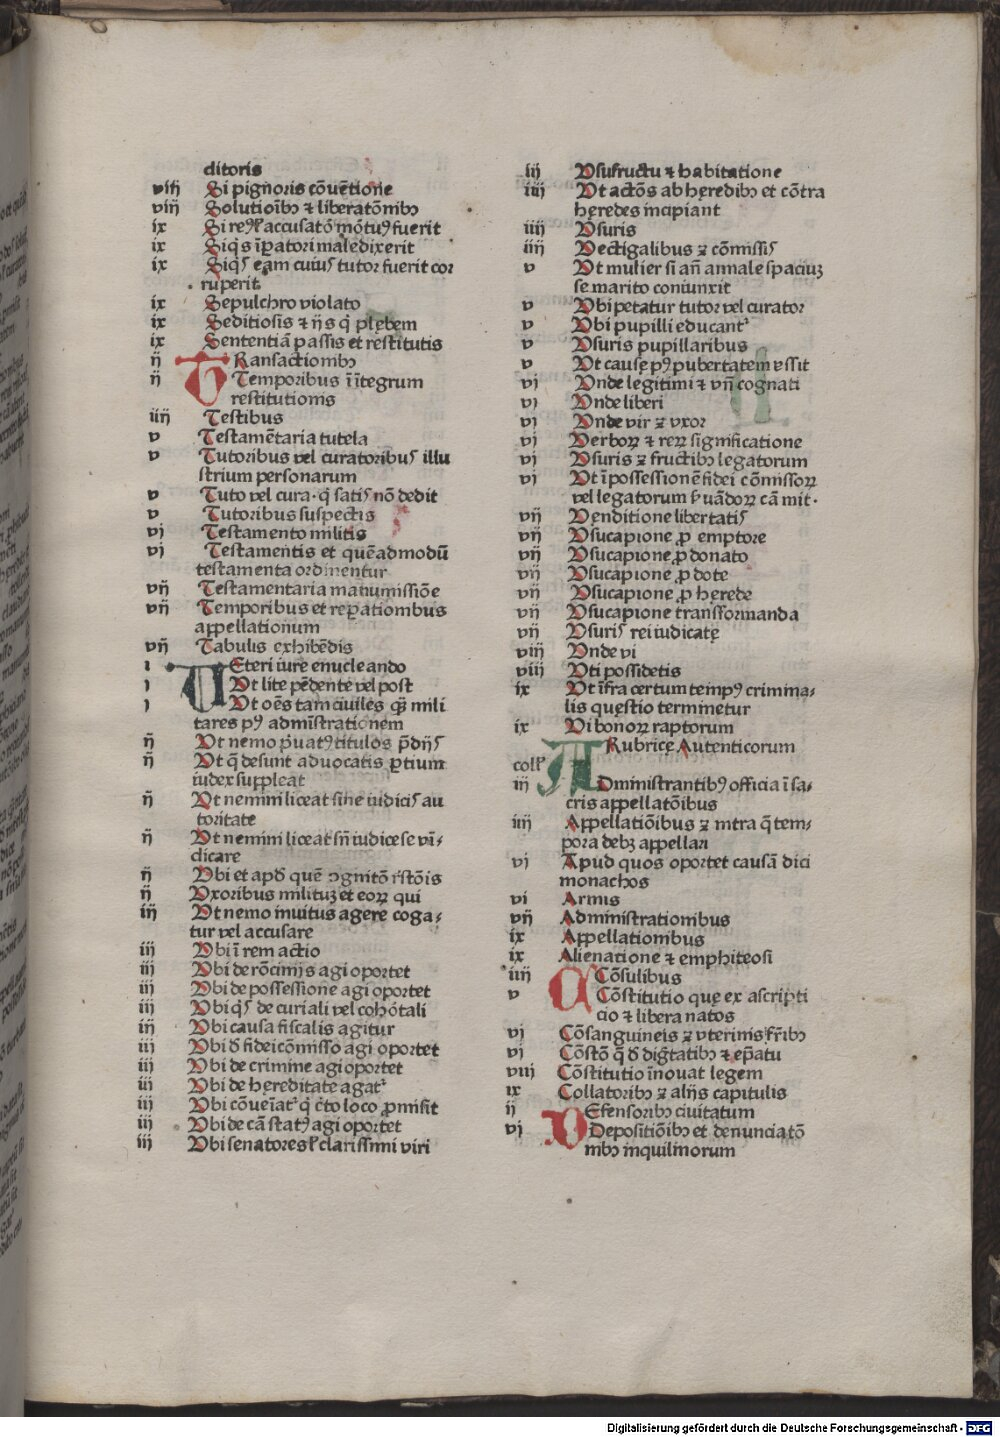 ditoris
viij Si pignoris cõuẽtione
viij Solutioĩbꝫ ⁊ liberatõnibꝫ
ix Si re accusatõ mõtuꝰ fuerit
ix Siqͥs ĩꝑatori maledixerit
ix Siqͥs eam cuiuꝰ tutor fuerit cor
ruperit
ix Sepulchro violato
ix Seditiosis ⁊ ijs qͥ plebem
ix Sententiã passis et restitutis
ij TRansactionibꝫ
ij Temporibus ĩ ĩtegrum
restitutionis
iiij Testibus
v Testamẽtaria tutela
v Tutoribus vel curatoribuꝰ illu
strium personarum
v Tuto vel cura· qͥ satiꝰ nõ dedit
v Tutoribus suspectis
vj Testamento militis
vj Testamentis et quẽadmodũ
testamenta ordinentur
vij Testamentaria manumissiõe
vij Temporibus et reꝑationibus
appellationum
vij Tabulis exhibẽdis
i VEteri iure enucleando
j Vt lite pẽdente vel post
j Vt oẽs tam ciuiles qꝫ mili
tares pꝰ admĩstrationem
ij Vt nemo pͥuatꝰ titulos p̃dijs
ij Vt q̃ desunt aduocatis ꝑtium
iudex suppleat
ij Vt nemini liceat sine iudiciꝰ au
toritate
ij Vt nemini liceat sñ iudice se vĩ-
dicare
ij Vbi et apud quẽ ꝯgnitõ rͥstõis
ij Vxoribus militum et eorꝝ qui
iij Vt nemo inuitus agere coga-
tur vel accusare
iij Vbi ĩ rem actio
iij Vbi de rõcinijs agi oportet
iij Vbi de possessione agi oportet
iij Vbi qͥs de curiali vel cohõtali
iij Vbi causa fiscalis agitur
iij Vbi đ fideicõmisso agi oportet
iij Vbi de crimine agi oportet
iij Vbi de hereditate agatͬ
iij Vbi cõueĩatͬ qͥ c̃to loco ꝓmisit
iij Vbi de cã statꝰ agi oportet
iij Vbi senatores ł clarissimi viri
iij Vsufructu ⁊ habitatione
iiij Vt actõs ab hęredibꝫ et cõtra
hęredes incipiant
iiij Vsuris
iiij Vectigalibus ⁊ cõmissis
v Vt mulier si añ annale spaciuꝫ
se marito coniunxit
v Vbi petatur tutor vel curator
v Vbi pupilli educantͬ
v Vsuris pupillaribus
v Vt causę pꝰ pubertatem assit
vj Vnde legitimi ⁊ vñ cognati
vj Vnde liberi
vj Vnde vir ⁊ vxor
vj Verborꝝ ⁊ rerꝝ significatione
vj Vsuris ⁊ fructibꝫ legatorum
vj Vt ĩ possessionẽ fidei cõmissorꝝ
vel legatorum ẜuãdorꝝ cã mit·
vij Venditione libertatis
vij Vsucapione ꝓ emptore
vij Vsucapione ꝓ donato
vij Vsucapione ꝓ dote
vij Vsucapione ꝓ herede
vij Vsucapione transformanda
vij Vsuris rei iudicatę
viij Vnde vi
viij Vti possidetis
ix Vt ĩfra certum tempꝰ crimina-
lis quęstio terminetur
ix Vi bonorꝝ raptorum
Rubricę Autenticorum
coll
iij ADministrantibꝰ officia ĩ sa-
cris appellatõibus
iiij Appellatiõibus ⁊ intra q̃ tem-
pora debꝫ appellari
vj Apud quos oportet causã dici
monachos
vi Armis
vij Administrationibus
ix Appellationibus
ix Alienatione ⁊ emphiteosi
iiij COõsulibus
v Cõstitutio quę ex ascripti
cio ⁊ libera natos
vj Cõsanguineis ⁊ vterinis fr̃ibꝫ
vj Cõstõ q̃ đ digͥtatibꝫ ⁊ ep̃atu
viij Cõstitutio ĩnouat legem
ix Collatoribꝫ ⁊ alijs capitulis
ij DEfensoribꝫ ciuitatum
vj Depositiõibꝫ et denunciatõ
nibꝫ inquilinorum
Digitalisierung gefördert durch die Deutsche Forschungsgemeinschaft - DFG